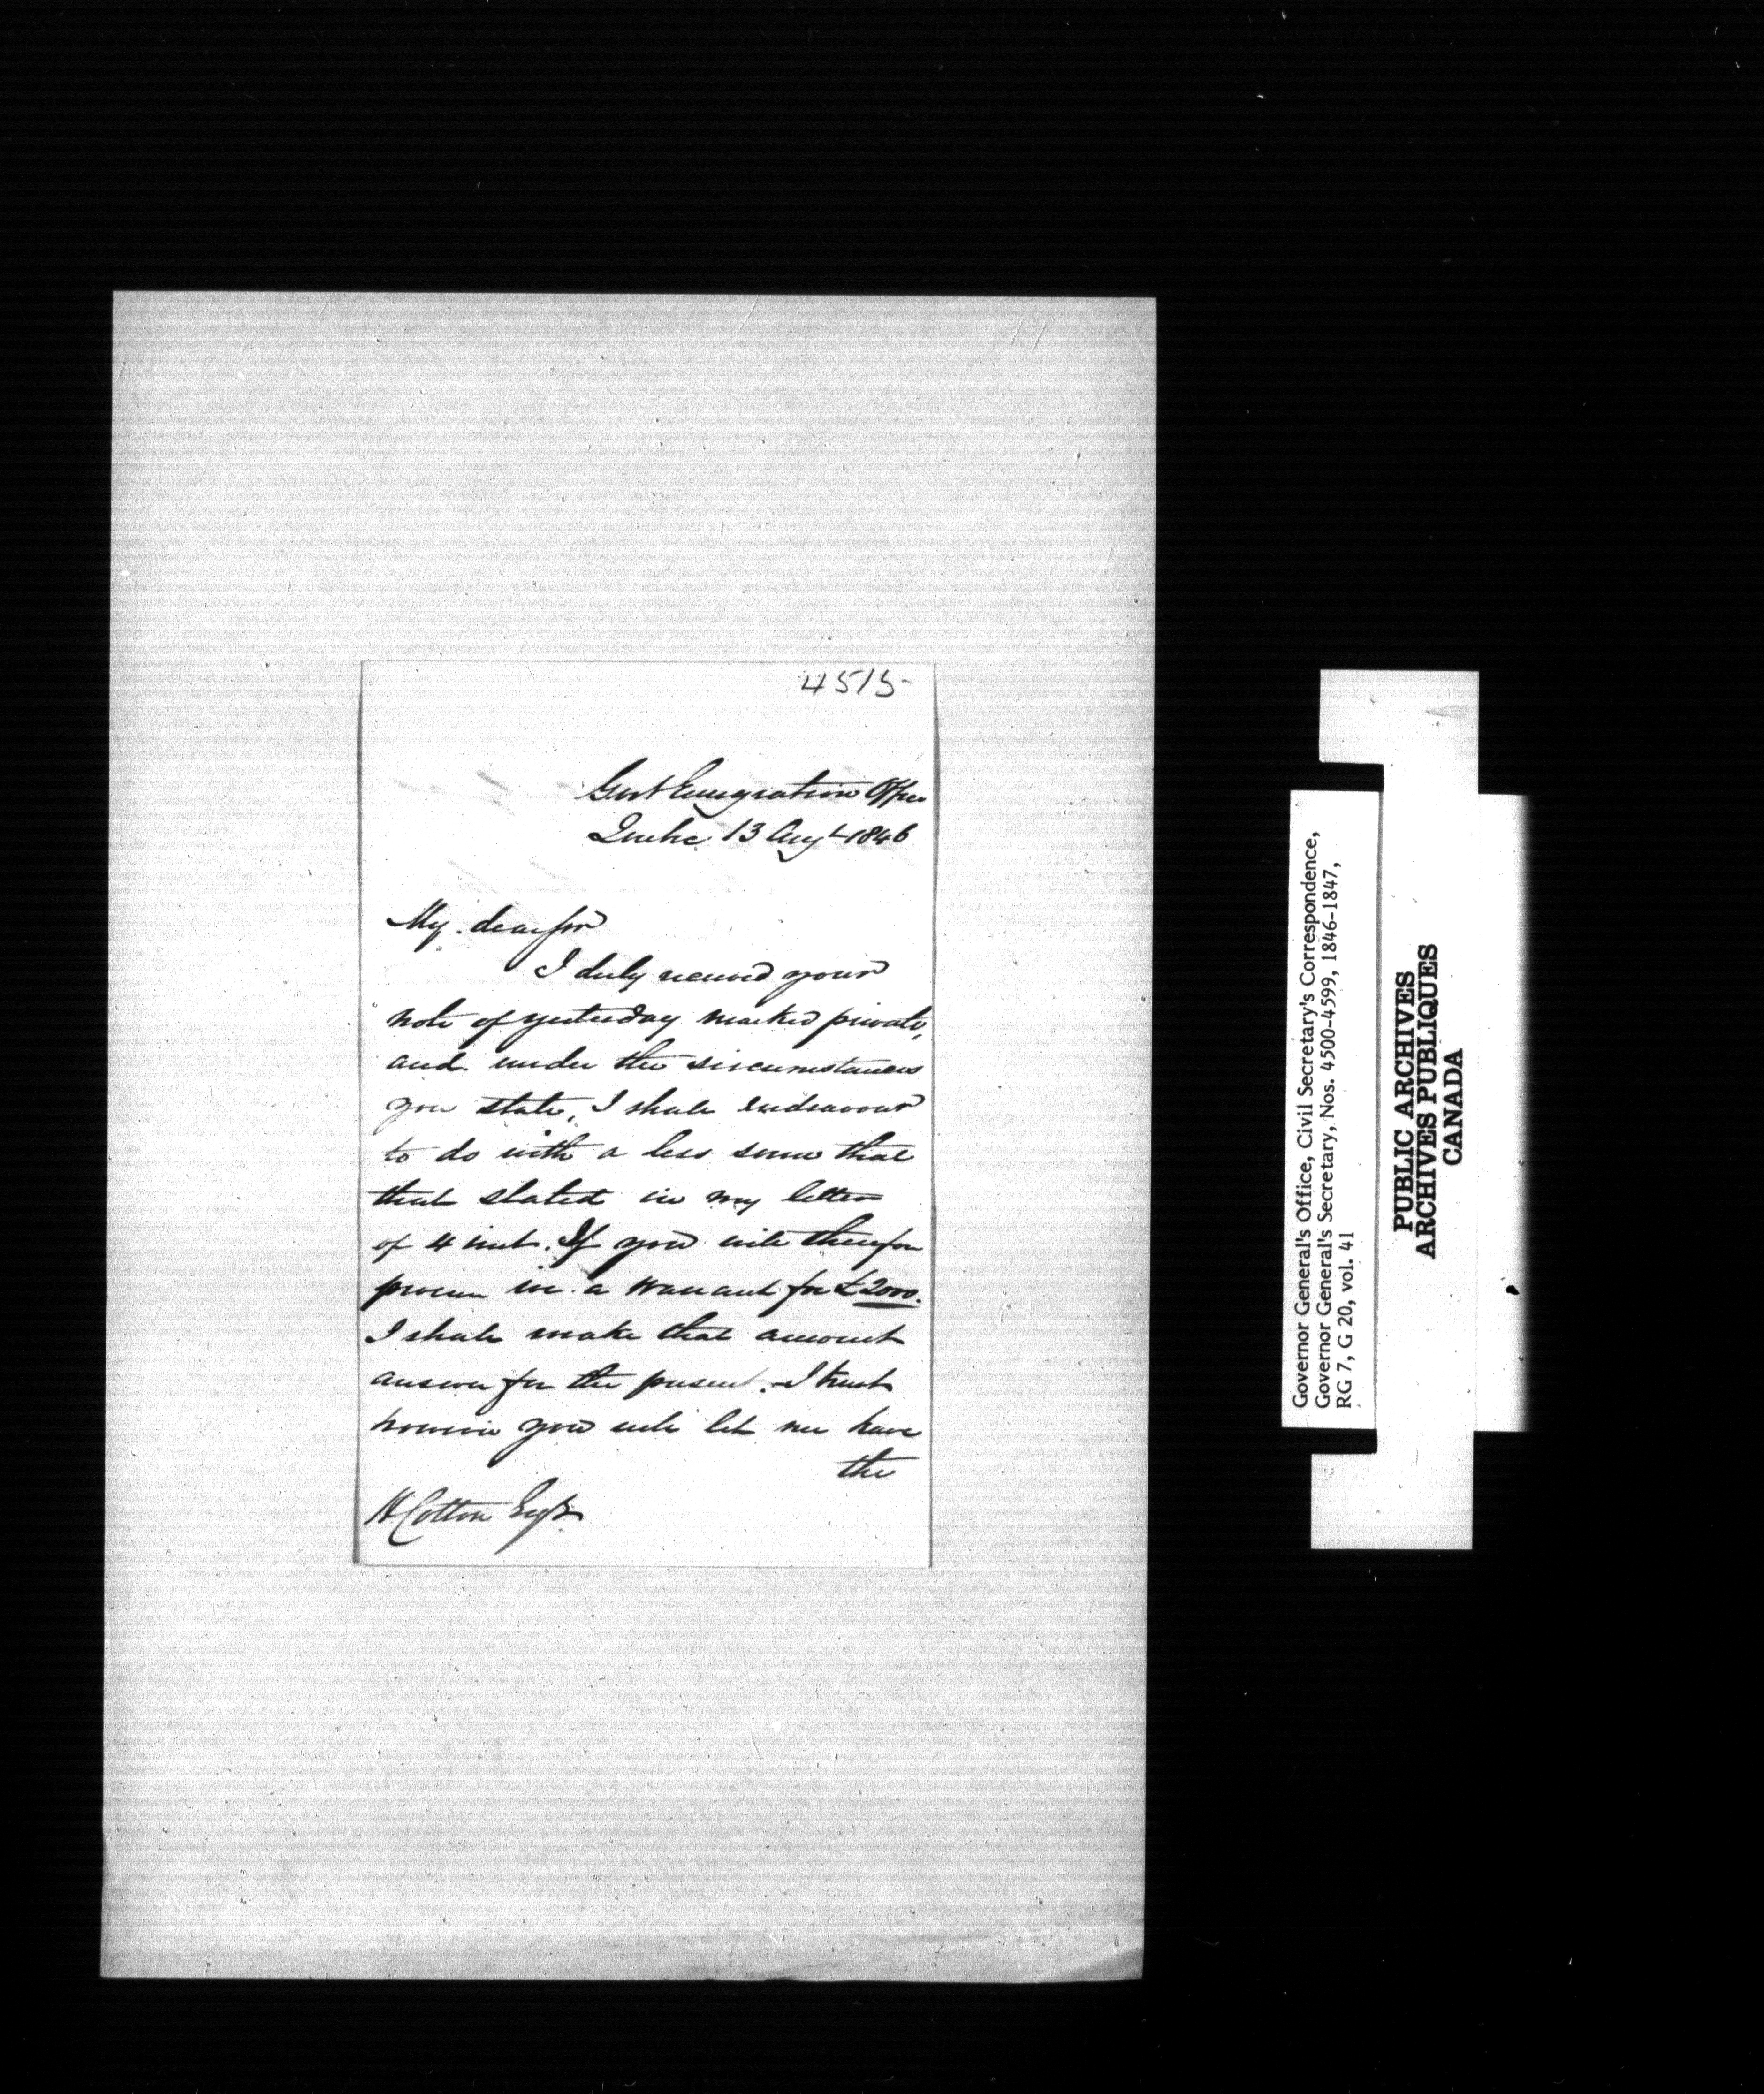 4515
Govt Emigration Office
Quebec 13 Augt 1846
My dear Sir
I duly received your
note of yesterday marked private,
and under the circumstances
you state, I shall endeavour
to do with a less sum that
that stated in my letter
of 4 inst. If you will therefore
procure me a Warrant for £2000.
I shall make that amount
answer for the present. I trust
however you will let me have
the
H Cotton Esqr
Governor General's Office, Civil Secretary's Correspondence,
Governor General's Secretary, Nos. 4500-4599, 1846-1847,
RG 7, G 20, vol. 41
PUBLIC ARCHIVES
ARCHIVES PUBLIQUES
CANADA